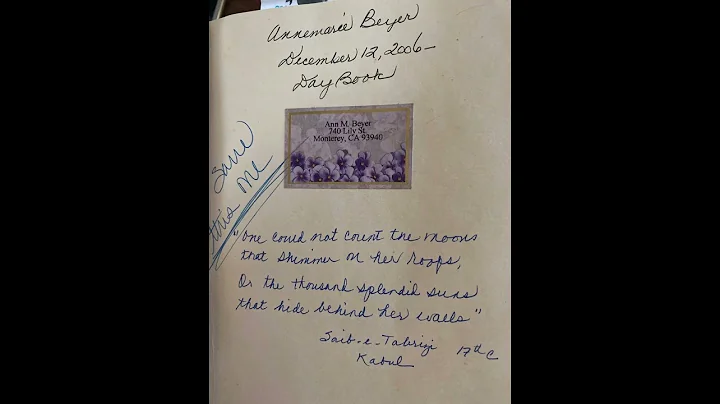 Annemarie Beyer
December 12, 2006-
Day Book
Ann M. Beyer
740 Lily St.
Monterey, CA 93940
Save
this
me
"One could not count the moons
that shimmer on her roofs,
Or the thousand splendid suns
that hide behind her walls"
Saib-e-Tabrizi 17th C
Kabul